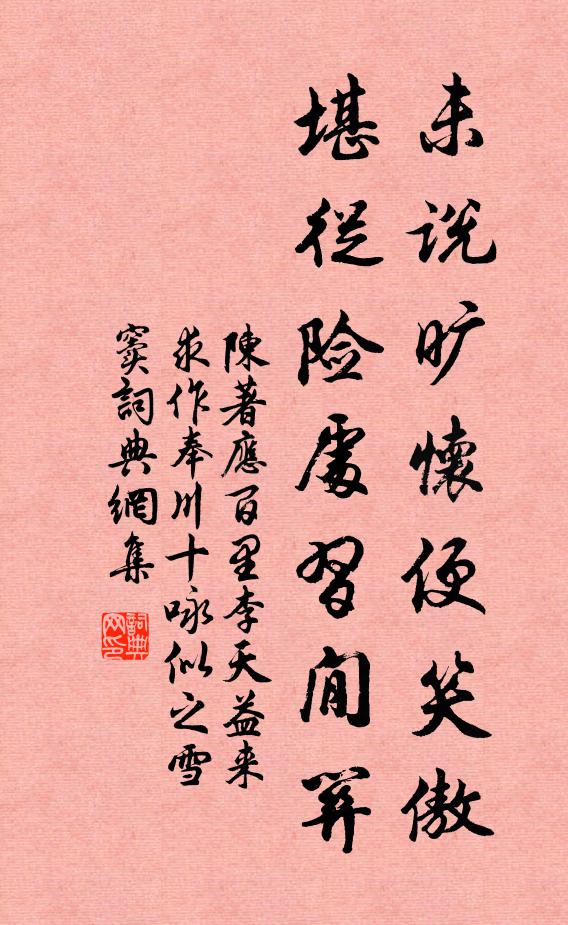 未説旷懷便笑傲
堪從险處習間關
陳著應百里李天益来
求作奉川十咏似之雪
窦詞典網集
詞典网印